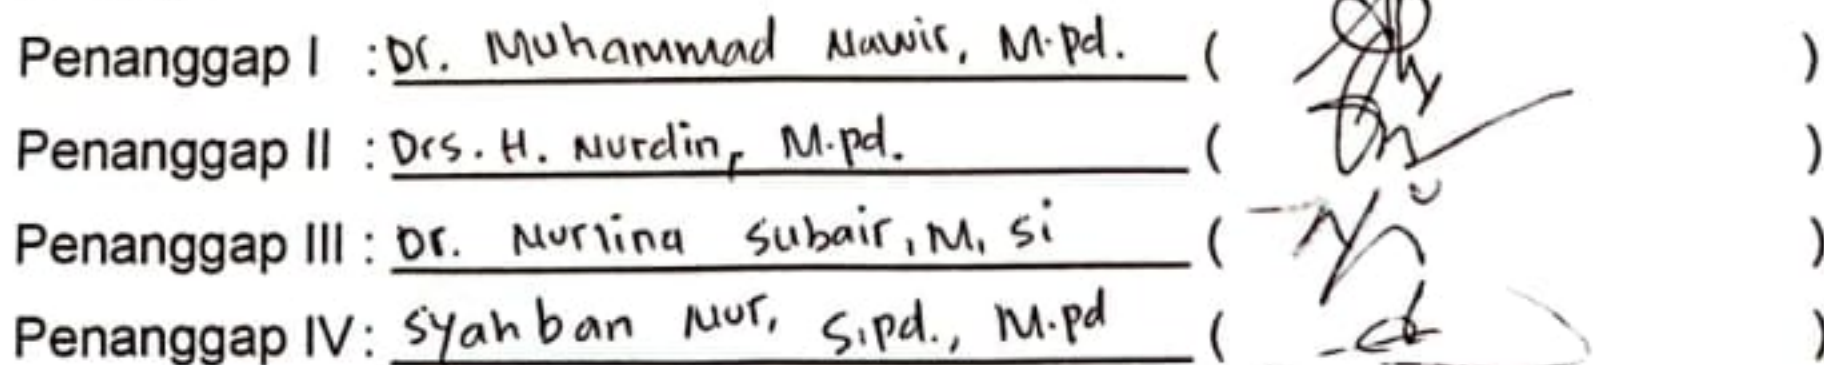 Penanggap I : Dr. Muhammad Nawir, M.pd. ( )
Penanggap II : Drs. H. Nurdin, M.pd. ( )
Penanggap III : Dr. Nurlina Subair, M, Si ( )
Penanggap IV : Syahban Nur, S.pd., M.pd ( )